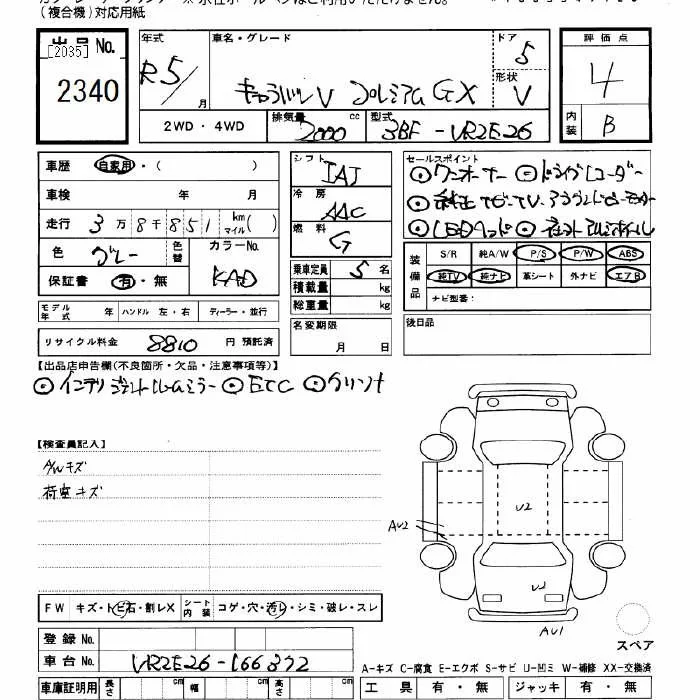 (複合機)対応用紙
出品 No. [2035]
2340
年式 R5/ 月
車名・グレード キャラバンV プレミアムGX
ドア 5
形状 V
2WD・4WD
排気量 2000 cc
型式 3BF-VR2E26
評価点 4
内装 B
車歴 自家用・( )
車検 年 月
走行 3万8千851 km マイル( )
色 グレー 色替
カラーNo. KAD
保証書 有・無
モデル年式 年 ハンドル 左・右 ディーラー・並行
リサイクル料金 8810 円 預託済
シフト IAT
冷房 AAC
燃料 G
乗車定員 5 名
積載量 kg
総重量 kg
名変期限 月 日
セールスポイント
◎ワンオーナー ◎ドライブレコーダー
◎純正ナビTV、アラウンドビューモニター
◎LEDヘッド ◎
装備品
S/R 純A/W P/S P/W ABS
純TV 純ナビ 革シート 外ナビ エアB
ナビ型番:
後日品
【出品店申告欄(不良箇所・欠品・注意事項等)】
◎インテリジェントルームミラー ◎ETC ◎プリント
【検査員記入】
A/Wキズ
荷室キズ
AU2
U2
AU1
FW キズ・トビ石・割レX シート内装 コゲ・穴・汚レ・シミ・破レ・スレ
登録 No.
車台 No. VR2E26-166372
車庫証明用 長さ cm 幅 cm 高さ cm
スペア
A-キズ C-腐食 E-エクボ S-サビ U-凹ミ W-補修 XX-交換済
工具 有・無 ジャッキ 有・無